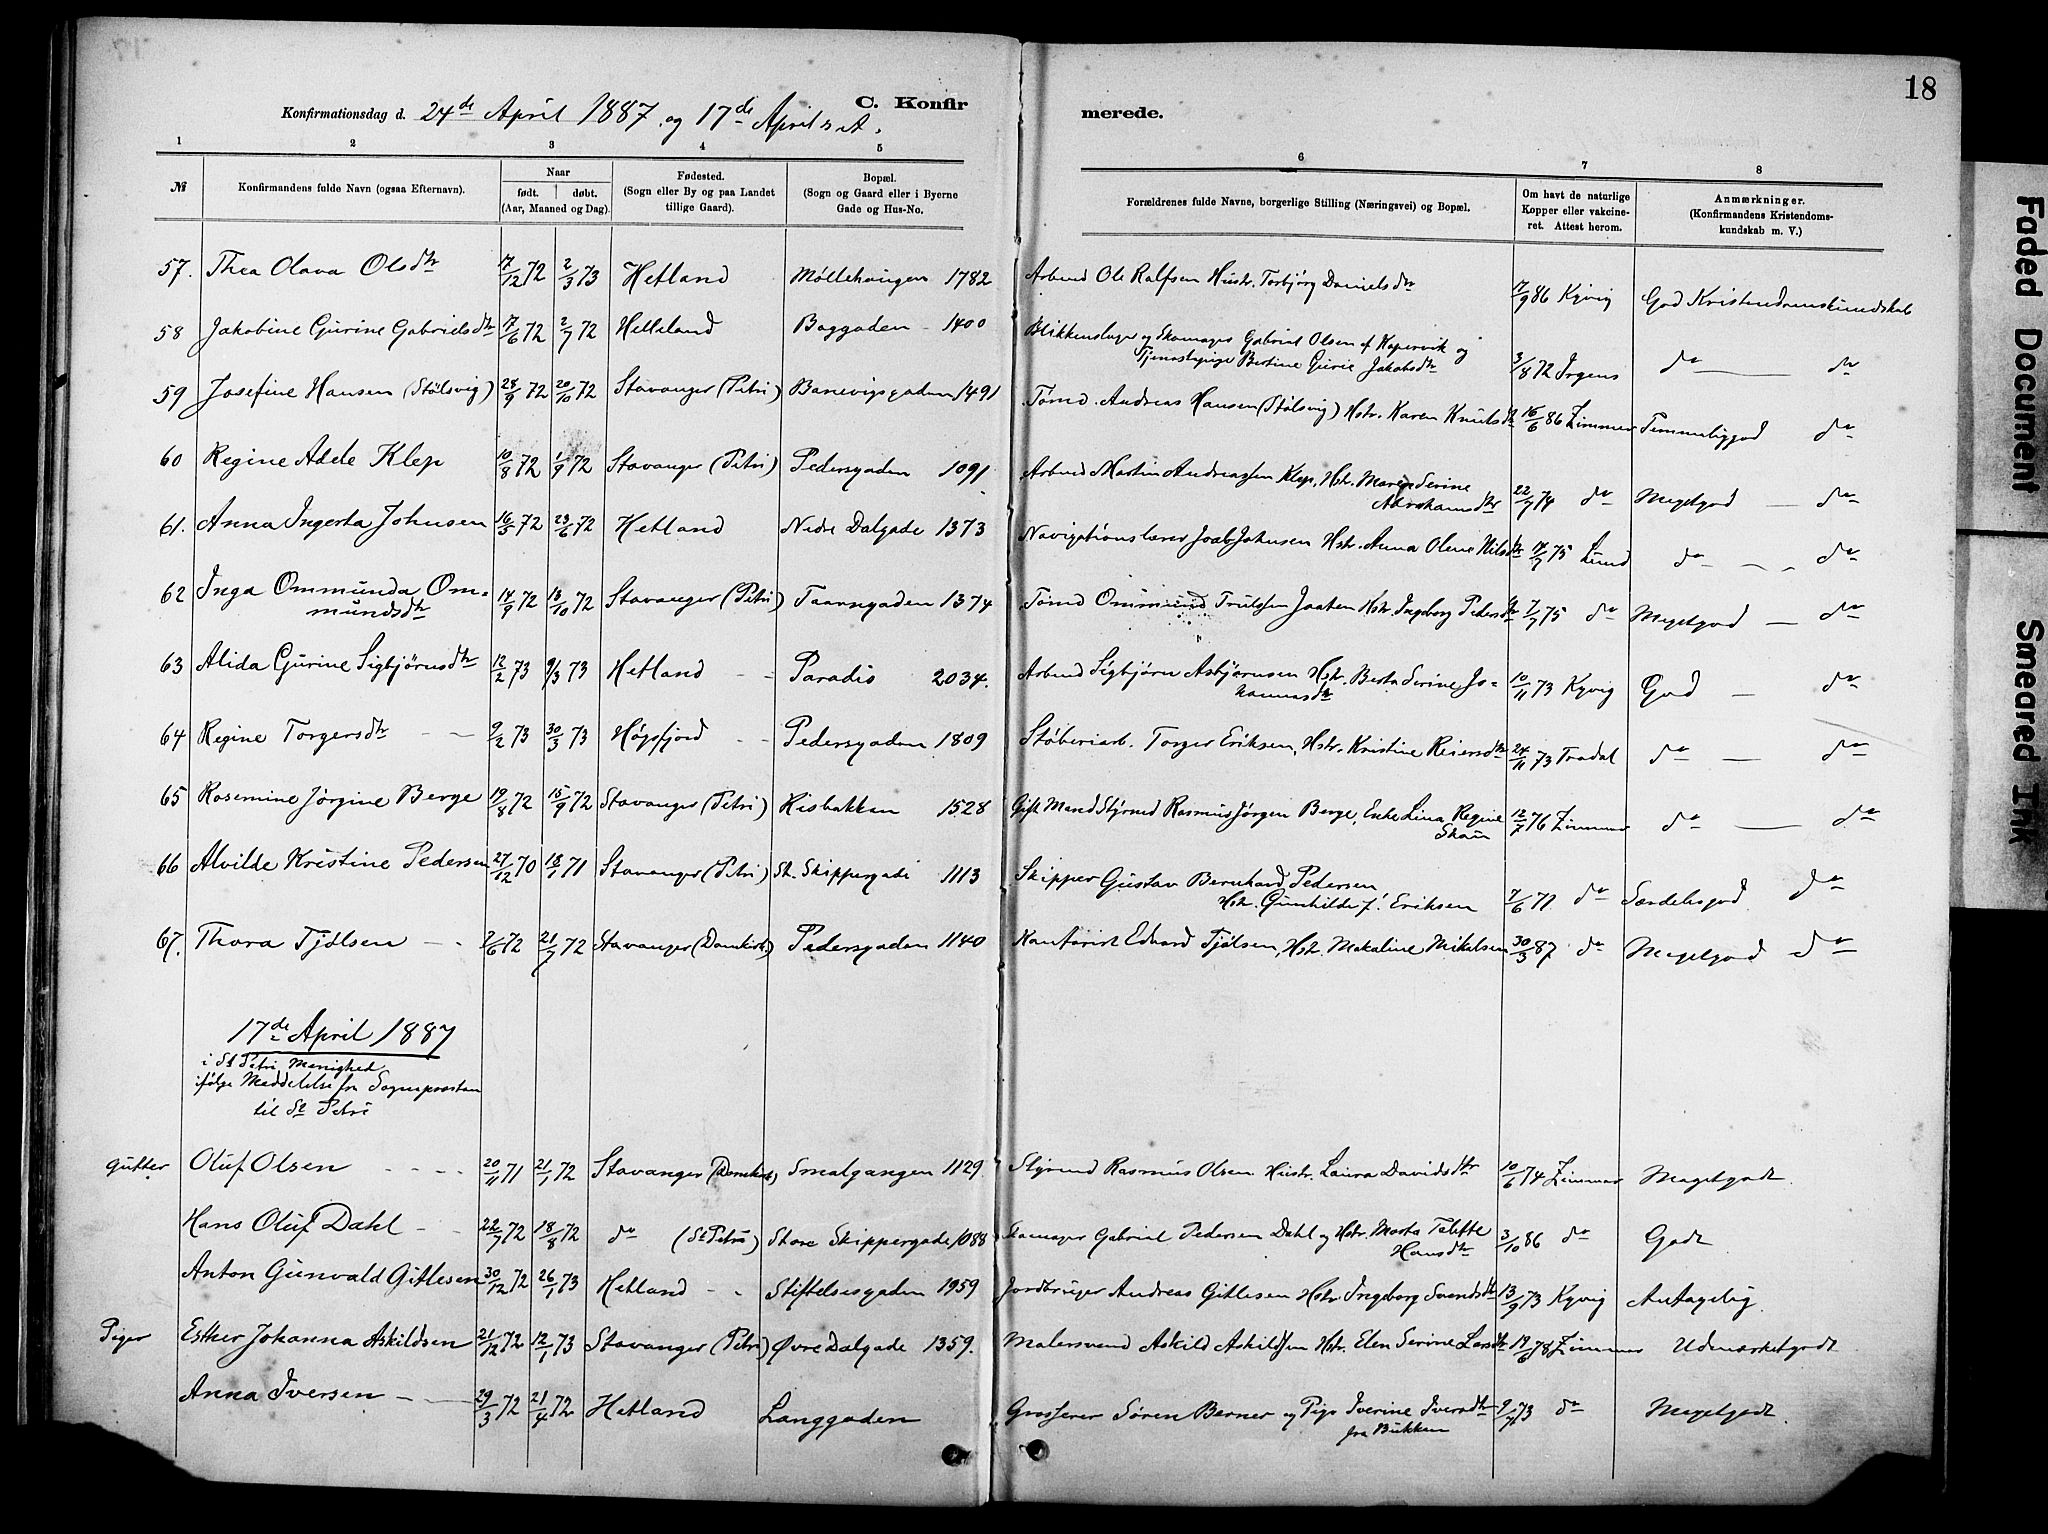 18
C. Konfirmerede.
Konfirmationsdag d. 24de April 1887 og 17de April s A.
1 2 3 4 5 6 7 8
№
Konfirmandens fulde Navn (ogsaa Efternavn).
Naar
født. døbt.
(Aar, Maaned og Dag).
Fødested.
(Sogn eller By og paa Landet
tillige Gaard).
Bopæl.
(Sogn og Gaard eller i Byerne
Gade og Hus-No.
Forældrenes fulde Navne, borgerlige Stilling (Næringsvei) og Bopæl.
Om havt de naturlige
Kopper eller vakcine-
ret. Attest herom.
Anmærkninger.
(Konfirmandens Kristendoms-
kundskab m. V.)
57. Thea Olava Olsdtr 17/12 72 2/3 73 Hetland Møllehaugen 1782 Arbmd Ole Ralfsen Hustr. Torbjørg Danielsdtr 17/9 86 Kyvig God Kristendomskundskab
58 Jakobine Gurine Gabrielsdtr 17/6 72 2/7 72 Hetland Baggaden - 1400 Blikkenslager og Skomager Gabriel Olsen af Kopervik og
Tjenestepige Bertine Gurie Jakobsdtr 3/8 72 Irgens do — do
59 Josefine Hansen (Stølsvig) 28/9 72 20/10 72 Stavanger (Petri) Banevigsgaden 1491 Tømd. Andreas Hansen (Stølsvig) Hstr. Karen Knutsdtr 16/6 86 Zimmer Temmeliggod do
60 Regine Adele Klep 10/8 72 1/9 72 Stavanger (Petri) Pedersgaden 1091 Arbmd Martin Andreassen Klep, Hstr. Maren Serine
Abrahamsdtr 22/7 74 do Megetgod — do
61. Anna Ingerta Johnsen 16/5 72 23/6 72 Hetland Nedre Dalgade 1373 Navigationslærer Joab Johnsen Hstr. Anna Olene Nilsdtr 14/7 75 Lund do - - do
62 Inga Ommunda Om-
mundsdtr 14/9 72 13/10 72 Stavanger (Petri) Taarngaden 1374 Tømd Ommund Trulssen Jaaten Hstr. Ingeborg Pedersdtr 7/7 75 do Megetgod — do
63 Alida Gurine Sigbjørnsdtr 12/2 73 9/3 73 Hetland - - Paradis 2034. Arbmd Sigbjørn Asbjørnsen Hstr. Berta Serine Jo-
hannesdtr 10/11 73 Kyvig God — do
64 Regine Torgersdtr - - 9/2 73 30/3 73 Høgsfjord - - Pedersgaden 1809 Støberiarb. Torger Eriksen, Hstr. Kristine Reiersdtr 24/11 73 Tradal do — do
65 Rosemine Jørgine Berge 19/8 72 15/9 72 Stavanger (Petri) Risbakken 1528 Gift Mand Styrmd Rasmus Jørgen Berge, Enke Lina Regine
Skaun 12/7 76 Zimmer do — do
66 Alvilde Kristine Pedersen 27/12 70 18/1 71 Stavanger (Petri) St. Skippergade 1113 Skipper Gustav Bernhard Pedersen
Hstr. Gunhilde f. Eriksen 7/6 71 do Særdelesgod do
67. Thora Tjølsen - - 2/6 72 21/7 72 Stavanger (Domkirk) Pedersgaden 1140 Kontorist Edvard Tjølsen, Hstr. Makaline Mikelsen 30/3 87 do Megetgod do
17de April 1887
i St Petri Menighed
ifølge Meddelelse fra Sognepræsten
til St Petri
Gutter Oluf Olsen - - - - 20/11 71 21/1 72 Stavanger (Domkirk) Smalgangen 1129. Styrmd Rasmus Olsen Hustr. Laura Davidsdtr 10/6 74 Zimmer Megetgodt.
Hans Oluf Dahl - - 22/7 72 18/8 72 do (St Petri) Store Skippergade 1088 Skomager Gabriel Pedersen Dahl og Hstr. Marta Telette
Hansdtr 3/10 86 do Godt
Anton Gunvald Gitlesen 30/12 72 26/1 73 Hetland - - Stiftelsesgaden 1959 Jordbruger Andreas Gitlesen Hstr. Ingeborg Svendsdtr 13/9 73 Kyvig Antagelig.
Piger Esther Johanna Askildsen 21/12 72 12/1 73 Stavanger (Petri) Øvre Dalgade 1359. Malersvend Askild Askildsen Hstr. Elen Serine Larsdtr 19/6 78 Zimmer Udmærketgodt.
Anna Iversen - - 29/3 72 21/4 72 Hetland Langgaden Grosserer Søren Berner og Pige Iverine Iversdtr
fra Bukken 9/7 73 do Megetgodt.
Faded Document
Smeared Ink